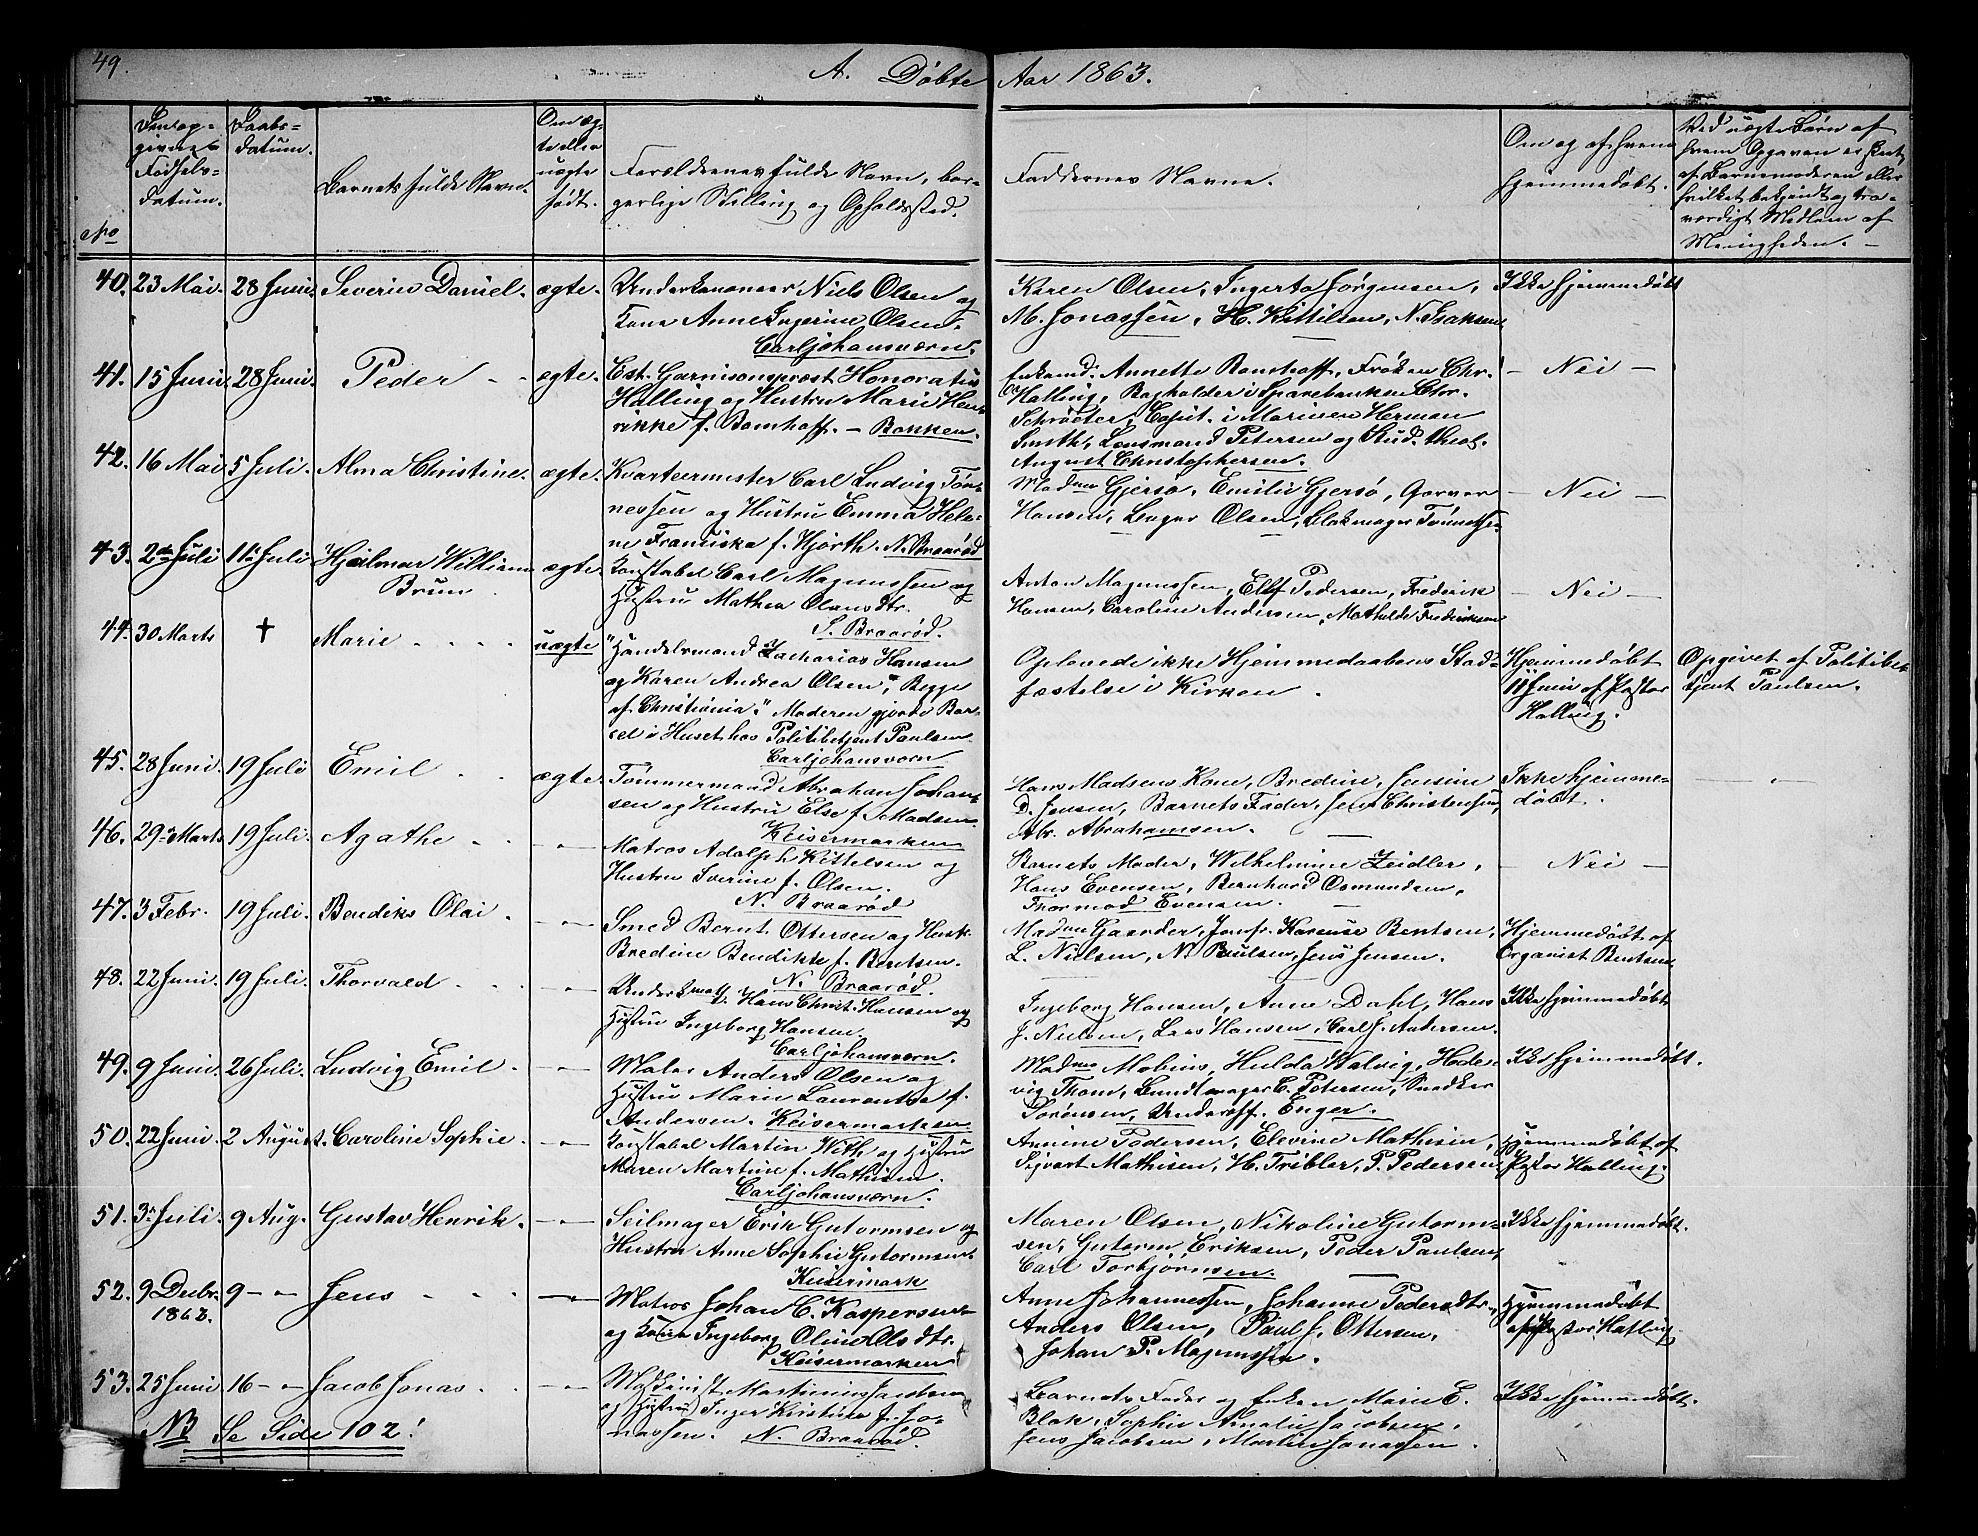 49.
A. Døbte Aar 1863.
No
Den opgivne Fødselsdatum.
Daabsdatum.
Barnets fulde Navn.
Om ægte eller uægte født.
Forældrenes fulde Navn, borgerlige Stilling og Opholdssted.
Faddernes Navne.
Om og af hvem hjemmedøbt.
Ved uægte Børn af hvem Opgaven er skeet, af Barnemoderen eller hvilket bekjendt og troværdigt Medlem af Menigheden.
40. 23 Mai. 28 Juni. Severin Daniel. ægte. Underkanoneer Niels Olsen og
Kone Anne Ingerine Olsen.
Carljohansværn.
Karen Olsen, Ingerta Jørgensen,
M. Jonassen, H. Kittilsen, N. Isaksen
Ikke hjemmedøbt
41. 15 Juni. 28 Juni. Peder ægte. Est. Garnisonspræst Honoratus
Halling og Hustru Marie Hen-
rikke f. Bomhoff. – Bakken.
Enkemd. Annette Bomhoff, Frøken Chr.
Halling, Bogholder i Sparebanken Chr.
Schrøeter, Capit. i Marinen Herman
Smith, Lensmand Petersen og Stud. theol.
August Christophersen.
– Nei –
42. 16 Mai 5 Juli. Alma Christine. ægte. Kvarteermester Carl Ludvig Tøn-
nessen og Hustru Emma Hele-
ne Franciska f. Hjorth. N. Braarød
Madme Gjersø, Emilie Gjersø, Garver
Hansen, Olsen, Blokmager Tønnesse-
– Nei –
43. 2den Juli 11te Juli. Hjalmar William
Brun
ægte. Konstabel Carl Magnussen og
Hustru Mathea Olavsdtr.
S. Braarød.
Anton Magnussen, Ellef Pedersen, Frederik
Hansen, Caroline Andersen, Mathilde Frederiksen
– Nei –
44. 30 Marts † Marie uægte "Handelsmand Zacharias Hansen
og Karen Andrea Olsen", Begge
af Christiania." Moderen gjorde Bar-
sel i Huset hos Politibetjent Paulsen
Carljohansværn
Oplevede ikke Hjemmedaabens Stad-
fæstelse i Kirken.
Hjemmedøbt
11 Juni af Pastor
Halling.
Opgivet af Politibe-
tjent Paulsen.
45. 28 Juni. 19 Juli Emil ægte. Tømmermand Abraham Johan-
sen og Hustru Else f. Madsen.
Keisermarken
Hans Madsens Kone, Bredine, Jensine
D. Jensen, Barnets Fader, Jens Christensen,
Abr. Abrahamsen.
Ikke hjemme-
døbt.
46. 29 Marts 19 Juli. Agathe – " – Matros Adolph Kittelsen og
Hustru Sverine f. Olsen.
N. Braarød
Barnets Moder, Wilhelmine Zeidler,
Hans Evensen, Bernhard Osmundsen,
Thormod Evensen.
– Nei –
47. 3 Febr. 19 Juli. Bendiks Olai – " – Smed Bernt Ottersen og Hust.
Bredine Bendikte f. Bentsen.
N. Braarød.
Madme Gaarder, Jomfr. Karense Bentsen,
L. Nielsen, N. Paulsen, Jens Jensen.
Hjemmedøbt af
Organist Bentsen
48. 22 Juni. 19 Juli. Thorvald – " – Hans Christ. Hansen og
Hustru Ingeborg Hansen.
Carljohansværn.
Ingeborg Hansen, Anne Dahl, Hans
J. Nielsen, Lars Hansen, Carl J. Andersen.
Ikke hjemmedøbt
49. 9 Juni. 26 Juli. Ludvig Emil – " – Maler Anders Olsen og
Hustru Marie Laurentse f.
Andersen. Keisermarken
Madme Mobius, Hulda Halvig, Hede-
vig Thom, Bundtmager C. Petersen, Snedker
Sørensen, Underoff. Enger.
Ikke hjemmedøbt.
50. 22 Juni. 2 August. Caroline Sophie. – " – Konstabel Martin With og Hustru
Maren Martine f. Mathisen
Carljohansværn.
Annine Pedersen, Elevine Mathisen,
Sigvart Mathisen, H. Tribler, P. Pedersen
Hjemmedøbt af
Pastor Halling.
51. 3 Juli. 9 Aug. Gustav Henrik. – " – Seilmager Erik Gutormsen og
Hustru Anne Sophie Gutormsen.
Keisermark
Maren Olsen, Nikoline Gutorm-
sen, Gutorm Eriksen, Peder Paulsen,
Carl Torbjørnsen.
Ikke hjemmedøbt.
52. 9 Decbr. 9 – " Jens – " – Matros Johan C. Kaspersen
1862.
og Kone Ingeborg Oline Olsdtr.
Keisermarken
Anne Johannessen, Johanne Pedersdtr.,
Anders Olsen, Paul J. Ottersen,
Johan P. Magnussen.
Hjemmedøbt
af Pastor Halling
53. 25 Juni 16 – " Jacob Jonas – " – Maskinist Martinius Jacobsen
og Hustru Inger Kirstine f. Jo-
nassen. N. Braarød.
Barnets Fader og Enken Marie E.
Blak, Sophie Amalie Jacobsen,
Jens Jacobsen, Martin Jonassen.
Ikke hjemmedøbt.
NB Se Side 102!